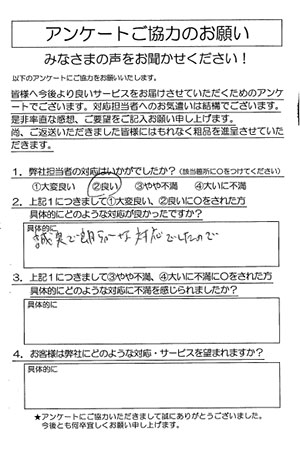 アンケートご協力のお願い
みなさまの声をお聞かせください！
以下のアンケートにご協力をお願いいたします。
皆様へ今後より良いサービスをお届けさせていただくためのアンケ
ートでございます。対応担当者へのお気遣いは結構でございます。
是非率直な感想、ご要望をご記入お願い申し上げます。
尚、ご返送いただきました皆様にはもれなく粗品を進呈させていた
だきます。
1．弊社担当者の対応はいかがでしたか？（該当箇所に○をつけてください）
①大変良い　②良い　③やや不満　④大いに不満
2．上記1につきまして①大変良い、②良いに○をされた方
具体的にどのような対応が良かったですか？
具体的に
誠実で明るい対応でしたので
3．上記1につきまして③やや不満、④大いに不満に○をされた方
具体的にどのような対応に不満を感じられましたか？
具体的に
4．お客様は弊社にどのような対応・サービスを望まれますか？
具体的に
★アンケートにご協力いただきまして誠にありがとうございました。
今後とも何卒宜しくお願い申し上げます。